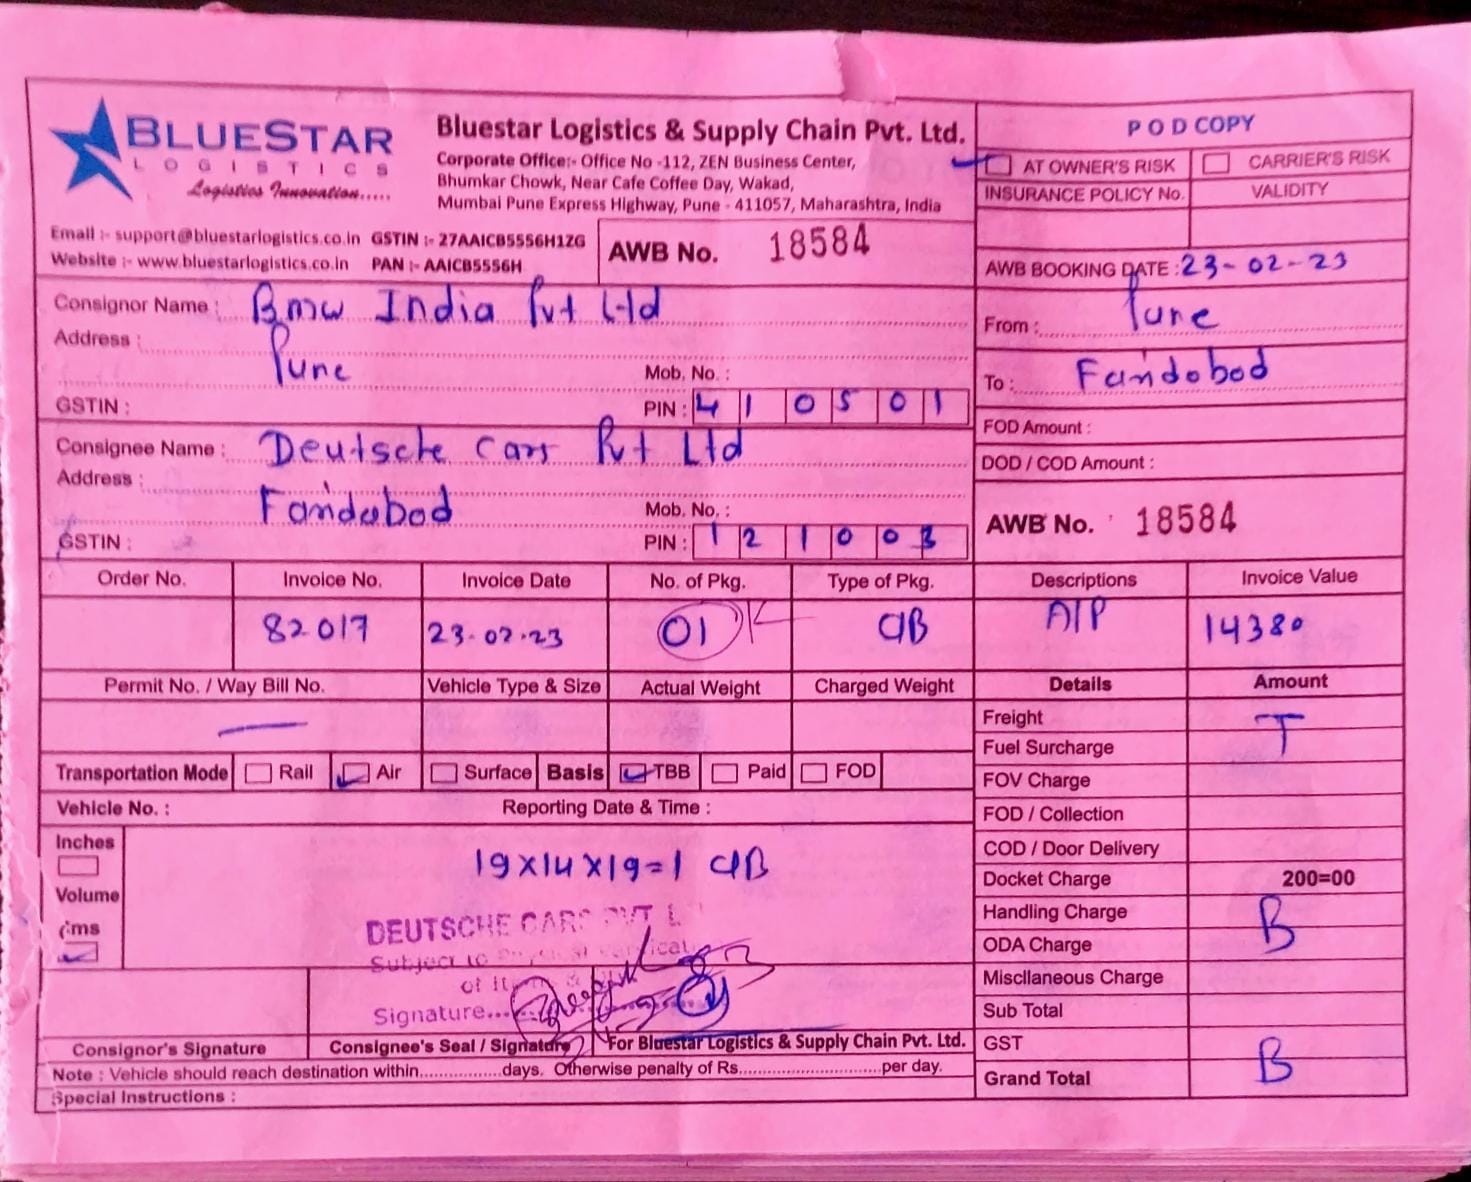 BLUESTAR
LOGISTICS
Logistics Innovation.....
Bluestar Logistics & Supply Chain Pvt. Ltd.
Corporate Office:- Office No -112, ZEN Business Center,
Bhumkar Chowk, Near Cafe Coffee Day, Wakad,
Mumbai Pune Express Highway, Pune - 411057, Maharashtra, India
POD COPY
AT OWNER'S RISK CARRIER'S RISK
INSURANCE POLICY No. VALIDITY
Email :- support@bluestarlogistics.co.in GSTIN :- 27AAICB5556H1ZG
Website :- www.bluestarlogistics.co.in PAN :- AAICB5556H
AWB No. 18584
AWB BOOKING DATE : 23-02-23
Consignor Name : Bmw India Pvt Ltd
Address :
Pune
Mob. No. :
GSTIN : PIN : 410501
From : Pune
To : Faridabad
FOD Amount :
DOD / COD Amount :
Consignee Name : Deutsche Cars Pvt Ltd
Address :
Faridabad
Mob. No. :
GSTIN : PIN : 121003
AWB No. 18584
Order No. Invoice No. Invoice Date No. of Pkg. Type of Pkg. Descriptions Invoice Value
82017 23-02-23 01 CIB A/P 14380
Permit No. / Way Bill No. Vehicle Type & Size Actual Weight Charged Weight Details Amount
Freight T
Fuel Surcharge
Transportation Mode Rail Air Surface Basis TBB Paid FOD
FOV Charge
Vehicle No. : Reporting Date & Time :
FOD / Collection
Inches
COD / Door Delivery
19x14x19=1 CIB
Docket Charge 200=00
Volume
Handling Charge B
cms
ODA Charge
DEUTSCHE CARS PVT L
Subject to
of It
Signature...
Miscllaneous Charge
Sub Total
Consignor's Signature Consignee's Seal / Signature For Bluestar Logistics & Supply Chain Pvt. Ltd.
GST
Note : Vehicle should reach destination within................days. Otherwise penalty of Rs...........................per day.
Grand Total B
Special Instructions :